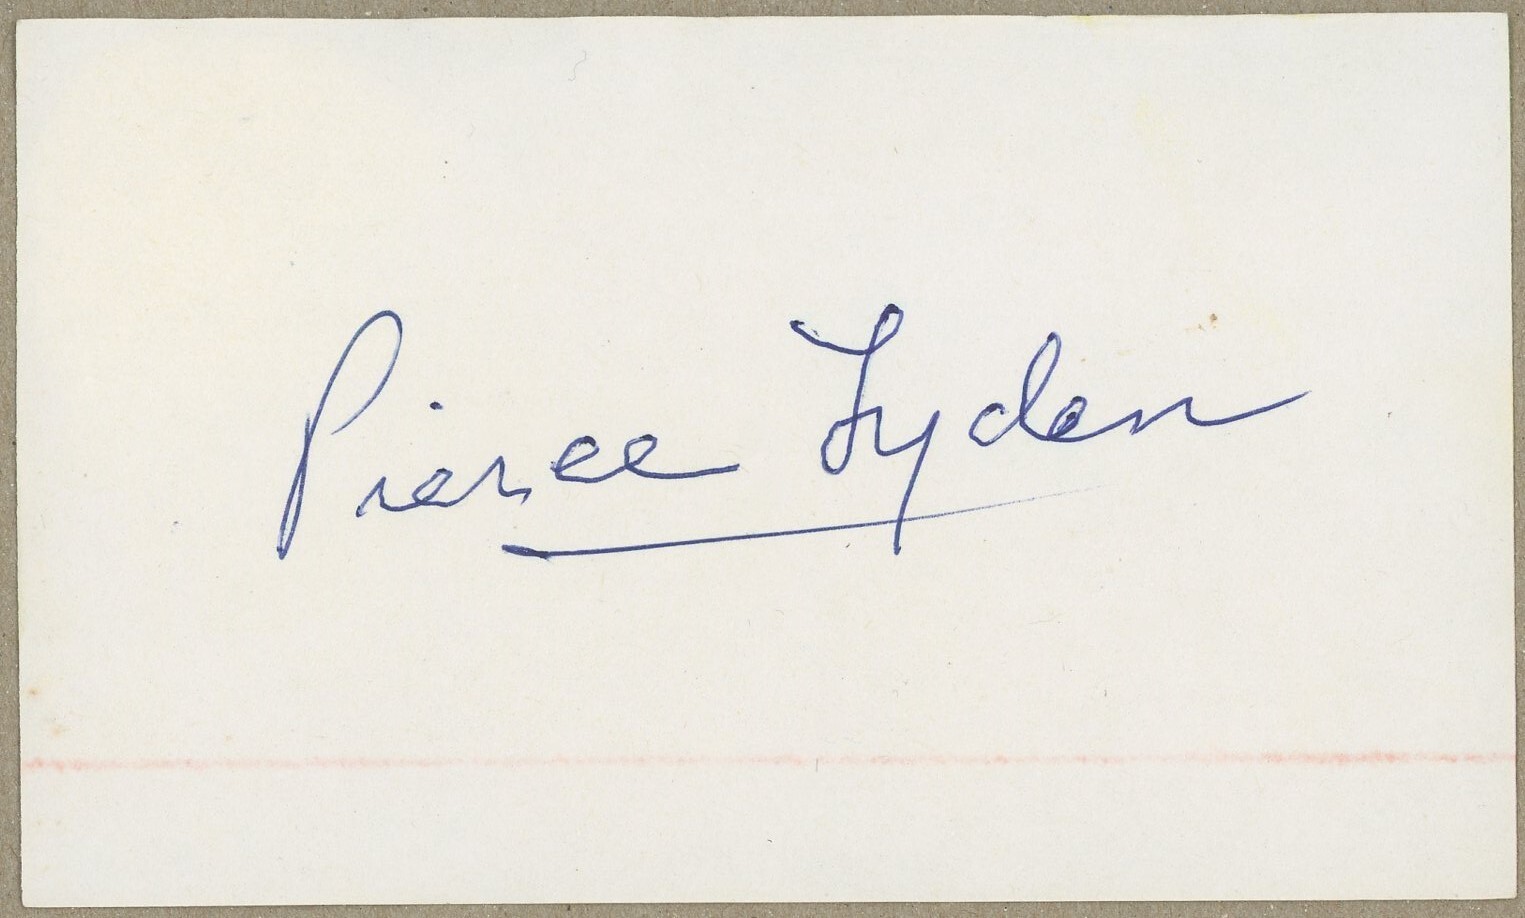 Pierce Lyden